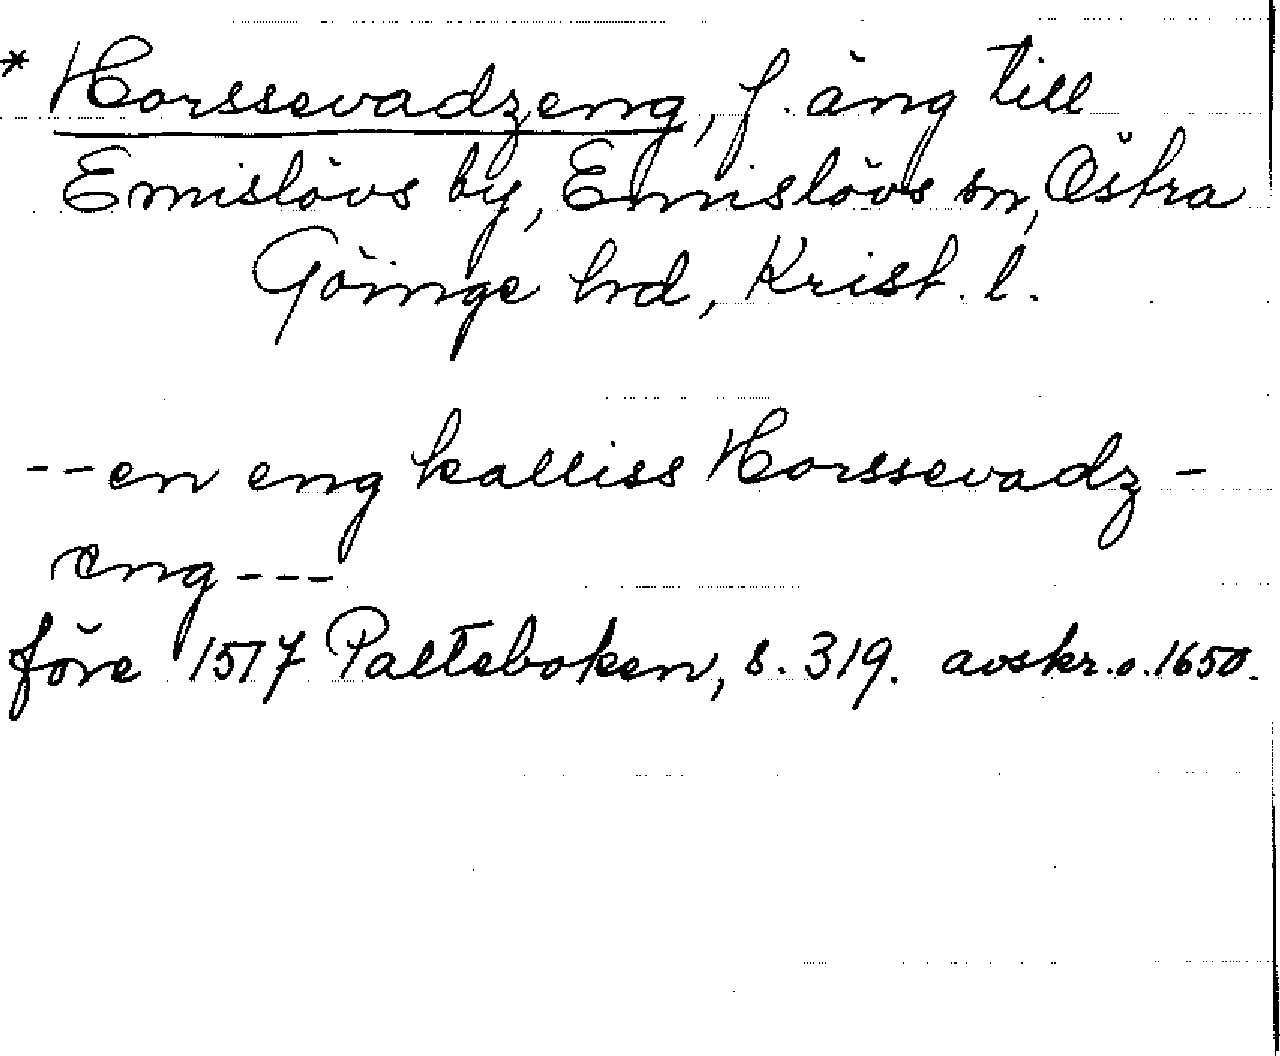 * Horssevadzeng, f. äng till
Emislövs by, Emislövs sn, Östra
Göinge hrd, Krist. l.
--en eng kalliss Horssevadz-
eng---
före 1517 Palteboken, s. 319. avskr. o. 1650.